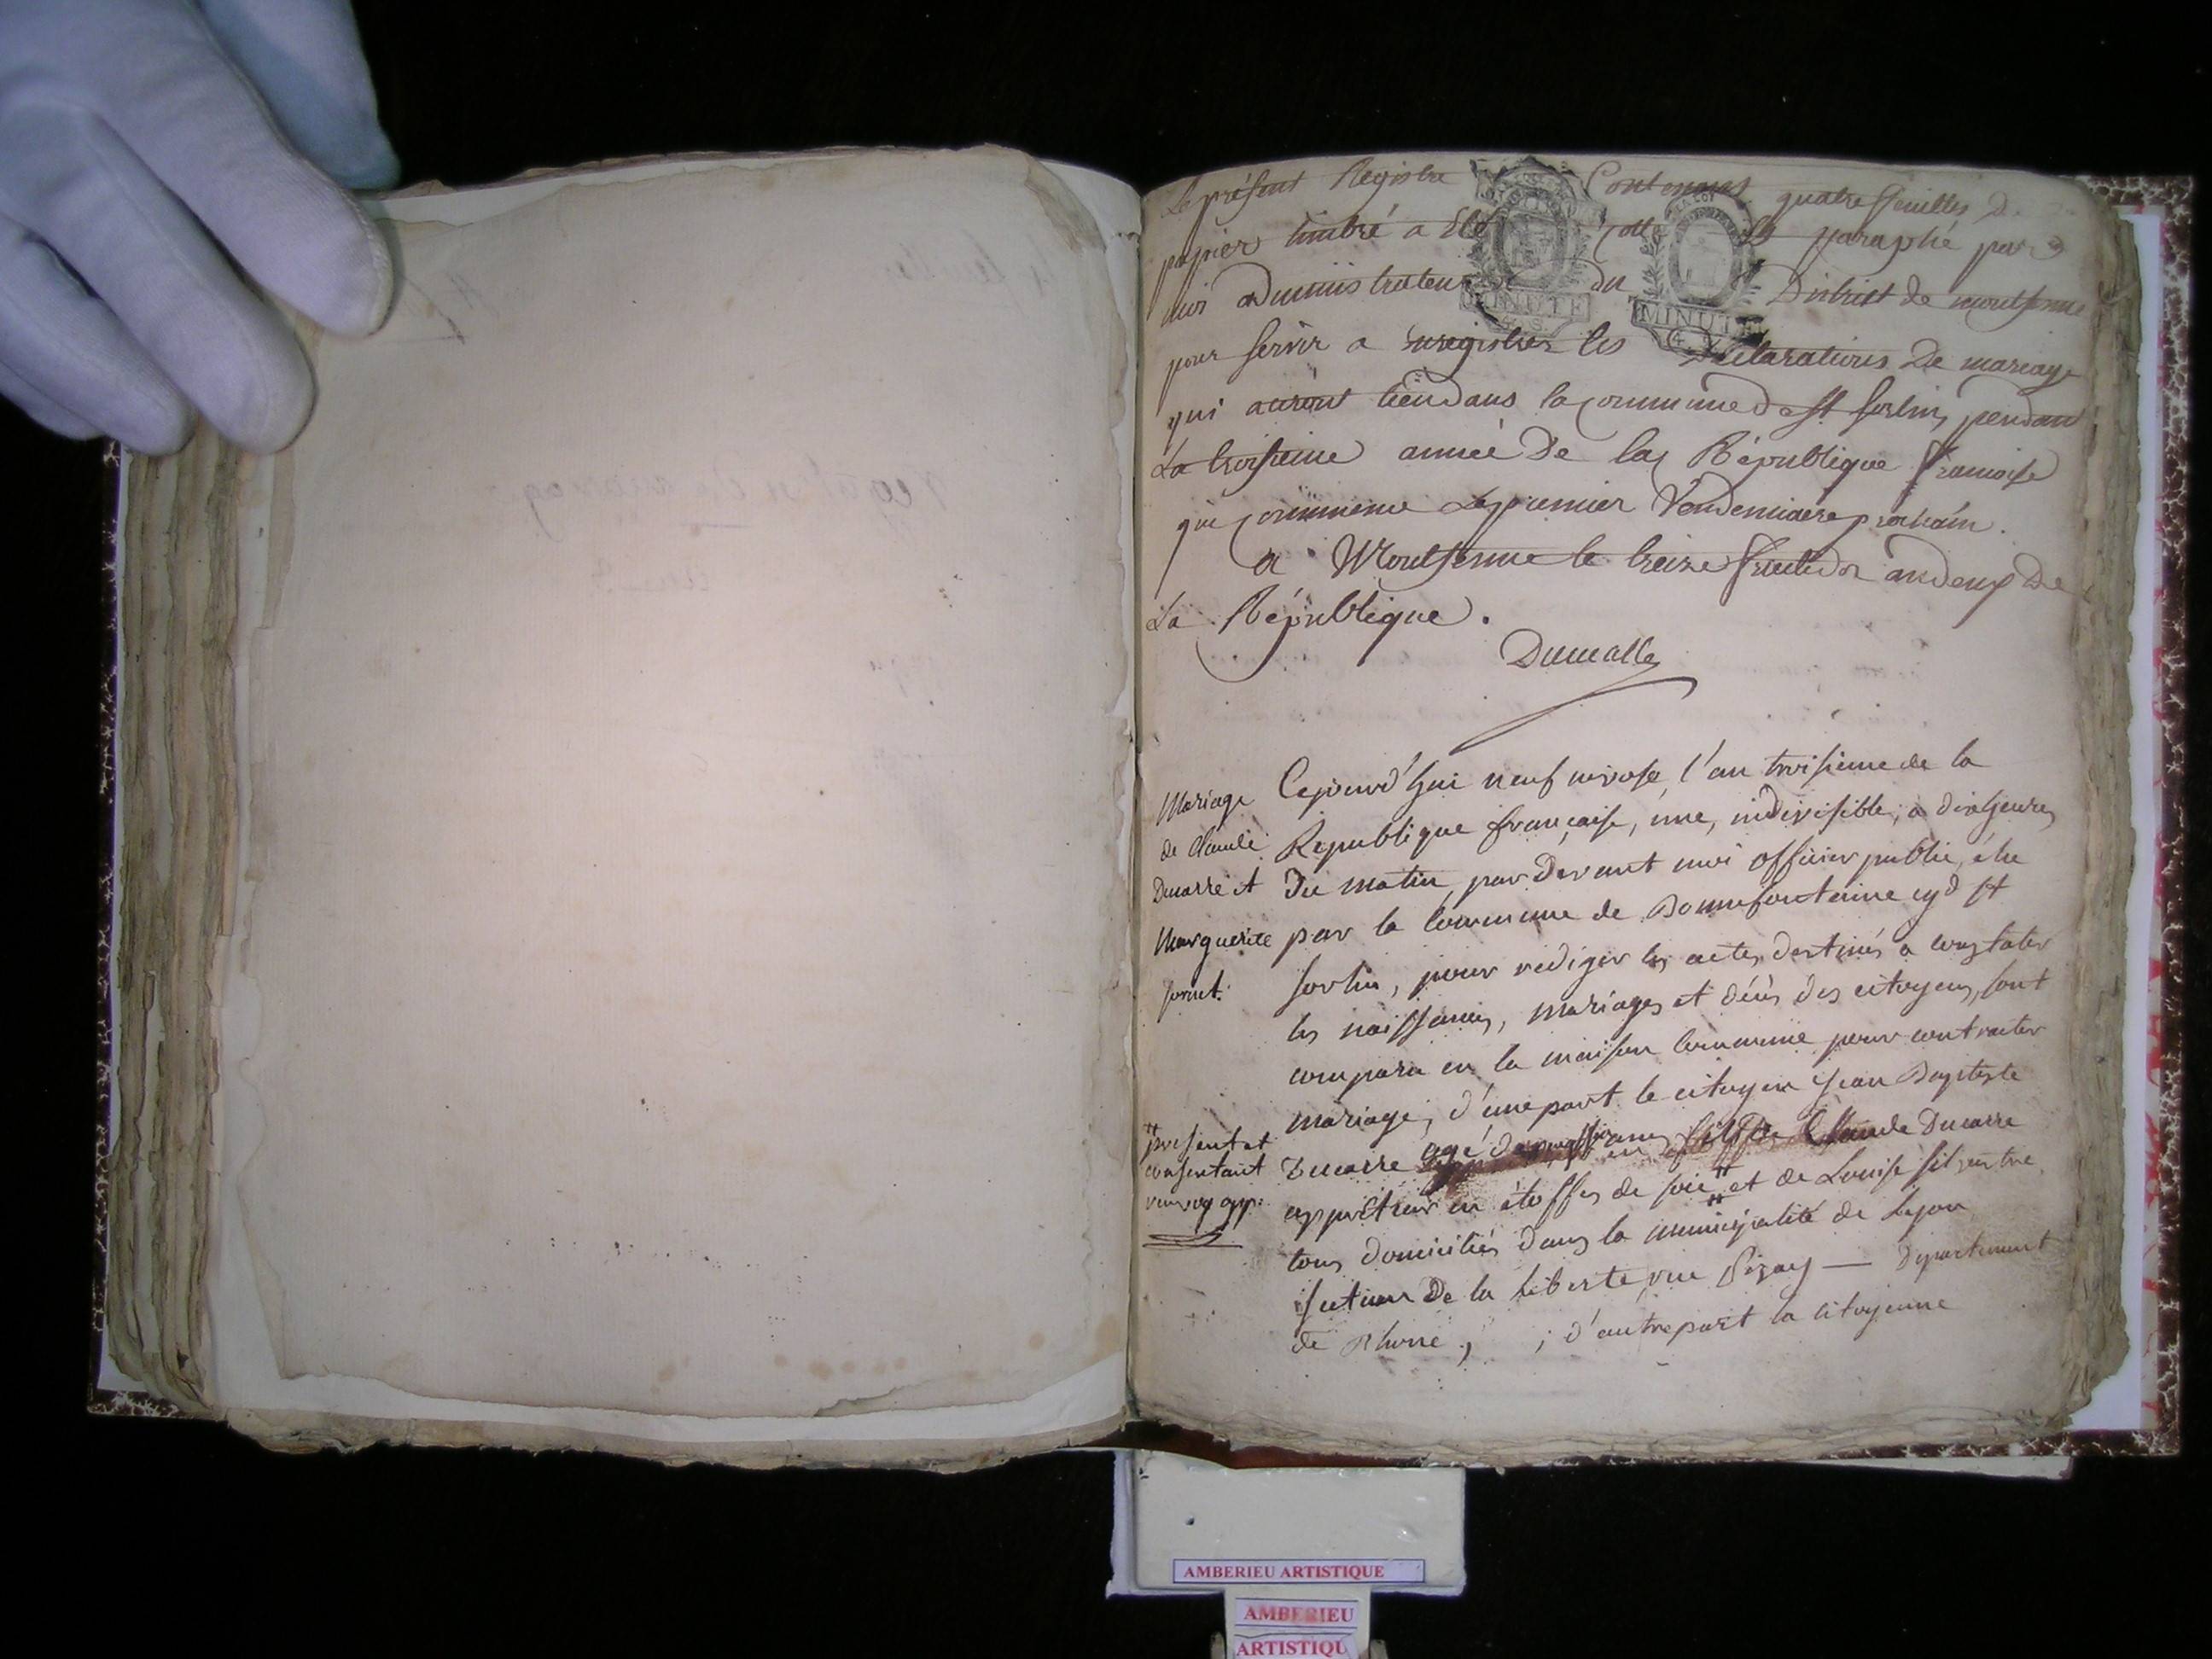 Le présent Registre Contenant quatre feuilles de
papier timbré a Eté Cotté Et paraphé par
moi administrateur du District de montferme
pour servir a Enregistrer les Déclarations De mariage
qui auront lieu dans la commune de St Sorlin, pendant
La troisieme année De la République françoise
qui commence Le premier Vendemiaire prochain.
a Montferme le treize fructidor an deux De
La République.
Ducualle
MINUTE
4. S.
MINUTE
Mariage
de Claude
Ducarre et
Marguerite
Sornet.
Cejourd'hui neuf nivose, l'an troisieme de la
Republique française, une, indivisible, à dix heures
du matin, par devant moi officier public, élu
par la Commune de Bonnefontaine cyd St
Sorlin, pour rediger les actes destinés a constater
les naissances, mariages et décès des citoyens, sont
comparu en la maison Commune pour contracter
mariage, d'une part le citoyen Jean Baptiste
Ducarre agé de ans fils de Claude Ducarre
appreteur en étoffes de soie ++ et de Louise silvestre
tous domiciliés dans la municipalité de Lyon
section De la Liberté, rue Pizay — Département
de Rhone, ; d'autre part la citoyenne
++ present et
consentant
renvoy app:
AMBERIEU ARTISTIQUE
AMBERIEU
ARTISTIQU